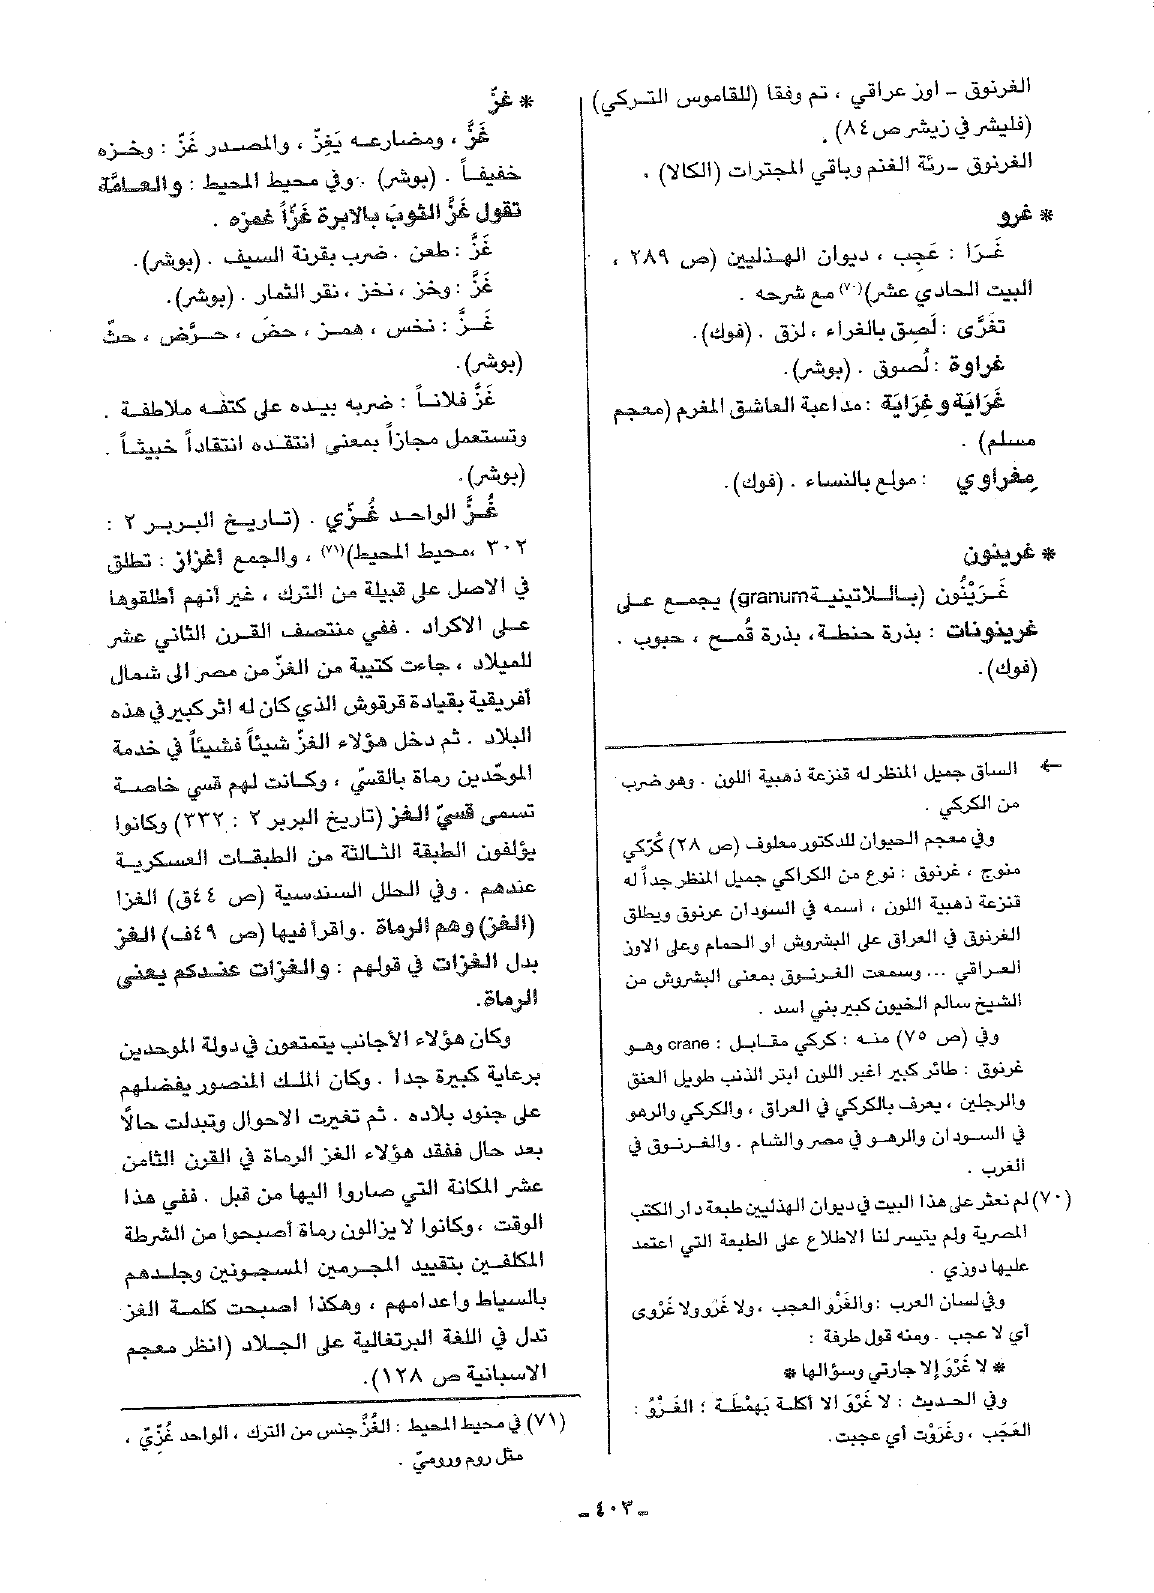 الغرنوق - اوز عراقي ، تم وفقا (للقاموس التركي)
(فليشر في زيشر ص ٨٤) .
الغرنوق - رئة الغنم وباقي المجترات (الكالا) .
* غرو
غَرَا : عَجِب ، ديوان الهذليين (ص ٢٨٩ ،
البيت الحادي عشر)(٧٠) مع شرحه .
تغَرَّى : لَصِق بالغراء ، لزق . (فوك).
غراوة : لُصوق . (بوشر).
غَرَايَة و غِرَاية : مداعبة العاشق المغرم (معجم
مسلم) .
مِغراوي : مولع بالنساء . (فوك).
* غرينون
غَرَيْنُون (بالاتينية granum) يجمع على
غرينونات : بذرة حنطة، بذرة قُمح ، حبوب .
(فوك).
← الساق جميل المنظر له قنزعة ذهبية اللون . وهو ضرب
من الكركي .
وفي معجم الحيوان للدكتور معلوف (ص ٢٨) كُرْكي
متوج ، غرنوق : نوع من الكراكي جميل المنظر جداً له
قنزعة ذهبية اللون ، أسمه في السودان عرنوق ويطلق
الغرنوق في العراق على البشروش او الحمام وعلى الاوز
العراقي ... وسمعت الغرنوق بمعنى البشروش من
الشيخ سالم الخيون كبير بني اسد .
وفي (ص ٧٥) منه : كركي مقابل : crane وهو
غرنوق : طائر كبير اغبر اللون ابتر الذنب طويل العنق
والرجلين ، يعرف بالكركي في العراق ، والكركي والرهو
في السودان والرهو في مصر والشام . والغرنوق في
الغرب .
(٧٠) لم نعثر على هذا البيت في ديوان الهذليين طبعة دار الكتب
المصرية ولم يتيسر لنا الاطلاع على الطبعة التي اعتمد
عليها دوزي .
وفي لسان العرب : والغَرْو العجب ، ولا غَرْو ولا غَرْوى
أي لا عجب . ومنه قول طرفة :
* لا غَرْوَ إلا جارتي وسؤالها *
وفي الحديث : لا غَرْوَ الا أكلة بَهمْطَة ؛ الغَرْوُ :
العَجَب ، وغَرَوْت أي عجبت.
* غزّ
غَزَّ ، ومضارعه يَغِزّ ، والمصدر غَزّ : وخزه
خفيفاً . (بوشر) . وفي محيط المحيط : والعامَّة
تقول غَزَّ الثوبَ بالابرة غَزّاً غمزه .
غَزَّ : طعن . ضرب بقرنة السيف . (بوشر).
غَزَّ : وخز ، نخز ، نقر الثمار . (بوشر).
غَزَّ : نخس ، همز ، حضّ ، حرَّض ، حثّ
(بوشر).
غَزَّ فلاناً : ضربه بيده على كتفه ملاطفة .
وتستعمل مجازاً بمعنى انتقده انتقاداً خبيثاً .
(بوشر).
غُزّ الواحد غُزّي . (تاريخ البربر ٢ :
٣٠٢ ، محيط المحيط)(٧١) ، والجمع أغزاز : تطلق
في الاصل على قبيلة من الترك ، غير أنهم أطلقوها
على الاكراد . ففي منتصف القرن الثاني عشر
للميلاد ، جاءت كتيبة من الغزّ من مصر الى شمال
أفريقية بقيادة قرقوش الذي كان له اثر كبير في هذه
البلاد . ثم دخل هؤلاء الغزّ شيئاً فشيئاً في خدمة
الموحّدين رماة بالقسيّ ، وكانت لهم قسي خاصة
تسمى قسيّ الغز (تاريخ البربر ٢ : ٣٣٢) وكانوا
يؤلفون الطبقة الثالثة من الطبقات العسكرية
عندهم . وفي الحلل السندسية (ص ٤٤ق) الغزا
(الغز) وهم الرماة . واقرأ فيها (ص ٤٩ف) الغز
بدل الغزات في قولهم : والغزات عندكم يعني
الرماة.
وكان هؤلاء الأجانب يتمتعون في دولة الموحدين
برعاية كبيرة جدا . وكان الملك المنصور يفضلهم
على جنود بلاده . ثم تغيرت الاحوال وتبدلت حالاً
بعد حال ففقد هؤلاء الغز الرماة في القرن الثامن
عشر المكانة التي صاروا اليها من قبل . ففي هذا
الوقت ، وكانوا لا يزالون رماة أصبحوا من الشرطة
المكلفين بتقييد المجرمين المسجونين وجلدهم
بالسياط واعدامهم ، وهكذا اصبحت كلمة الغز
تدل في اللغة البرتغالية على الجلاد (انظر معجم
الاسبانية ص ١٢٨).
(٧١) في محيط المحيط : الغُزُّ جنس من الترك ، الواحد غُزّيّ ،
مثل روم وروميّ .
- ٤٠٣ -